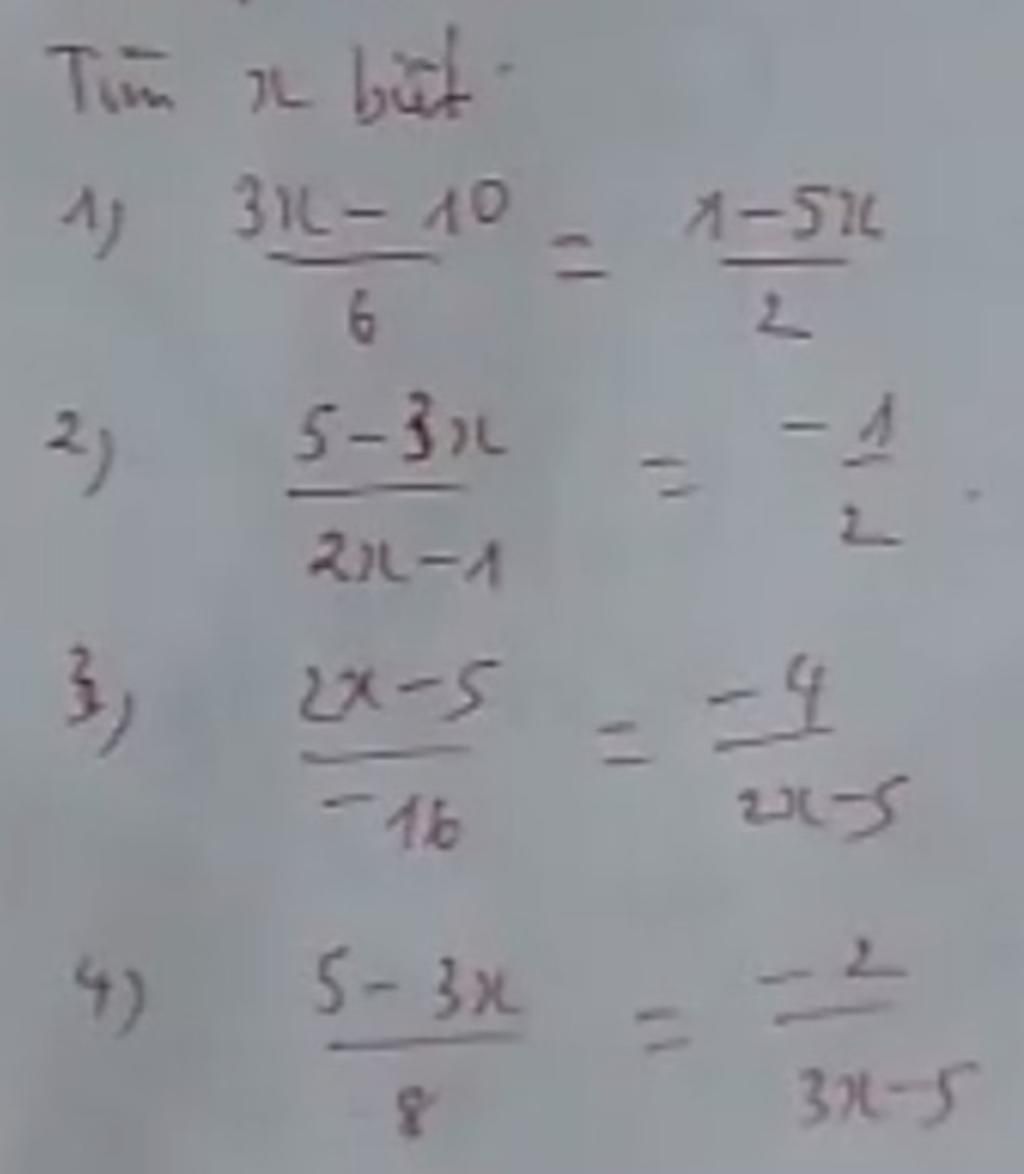 Tìm x biết
1) \frac{3x - 10}{6} = \frac{1 - 5x}{2}
2) \frac{5 - 3x}{2x - 1} = -\frac{1}{2}.
3) \frac{2x - 5}{-16} = \frac{-4}{2x - 5}
4) \frac{5 - 3x}{8} = \frac{-2}{3x - 5}